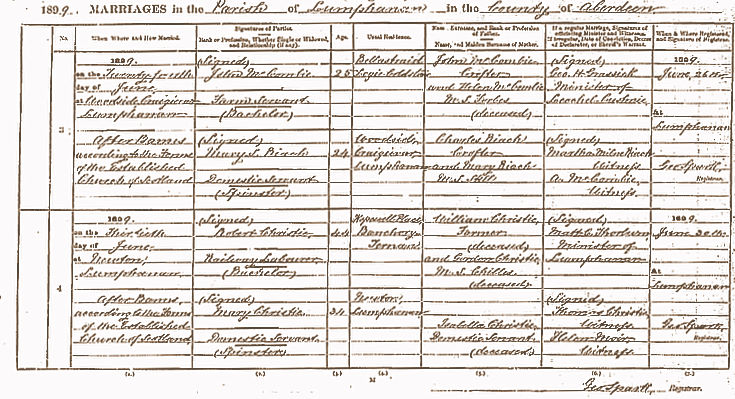 1889. MARRIAGES in the Parish of Lumphanan in the County of Aberdeen
No. When and How Married. Signatures of Parties. Rank or Profession, Whether Single or Widowed, and Relationship (if any). Age. Usual Residence. Name, Surname, and Rank or Profession of Father. Name, and Maiden Surname of Mother. If a regular Marriage, Signatures of officiating Minister and Witnesses. If irregular, Date of Conviction, Decree of Declarator, or Sheriff's Warrant. When & Where Registered, and Signature of Registrar.
3
1889.
on the Twenty fourth
day of
June,
at Woodside Craigievar
Lumphanan
After Banns
according to the Forms
of the Established
Church of Scotland
(Signed)
John McCombie
Farm Servant
(Bachelor)
(Signed)
Mary J. Riach
Domestic Servant
(Spinster)
25
24
Logie-Coldstone
Woodside,
Craigievar
Lumphanan
John McCombie
Crofter
and Helen McCombie
M.S. Forbes
(deceased)
Charles Riach
Crofter
and Riach
M.S. Still
(Signed)
Geo. H.
Minister of
Leochel Cushnie
(Signed)
Martha Milne Riach
Witness.
A. McCombie,
Witness.
June, 26th
At
Lumphanan
Geo Spark,
Registrar.
4
1889.
on the Thirtieth
day of
June,
at
Newton,
Lumphanan.
After Banns,
according to the Forms
of the Established
Church of Scotland.
(Signed)
Robert Christie,
Railway Labourer
(Bachelor)
(Signed)
Mary Christie,
Domestic Servant.
(Spinster)
44
34
Banchory
Ternan
Newton,
Lumphanan
William Christie,
Farmer
(deceased)
and Gordon Christie
M.S.
(deceased)
Isabella Christie,
Domestic Servant
(deceased)
(Signed)
Minister of
Lumphanan
(Signed)
Thomas Christie
Witness.
Helen Moir
Witness.
1889.
June 30th
At
Lumphanan
Geo Spark,
Registrar.
(1.) (2.) (3.) (4.) (5.) (6.) (7.)
M
Geo Spark, Registrar.